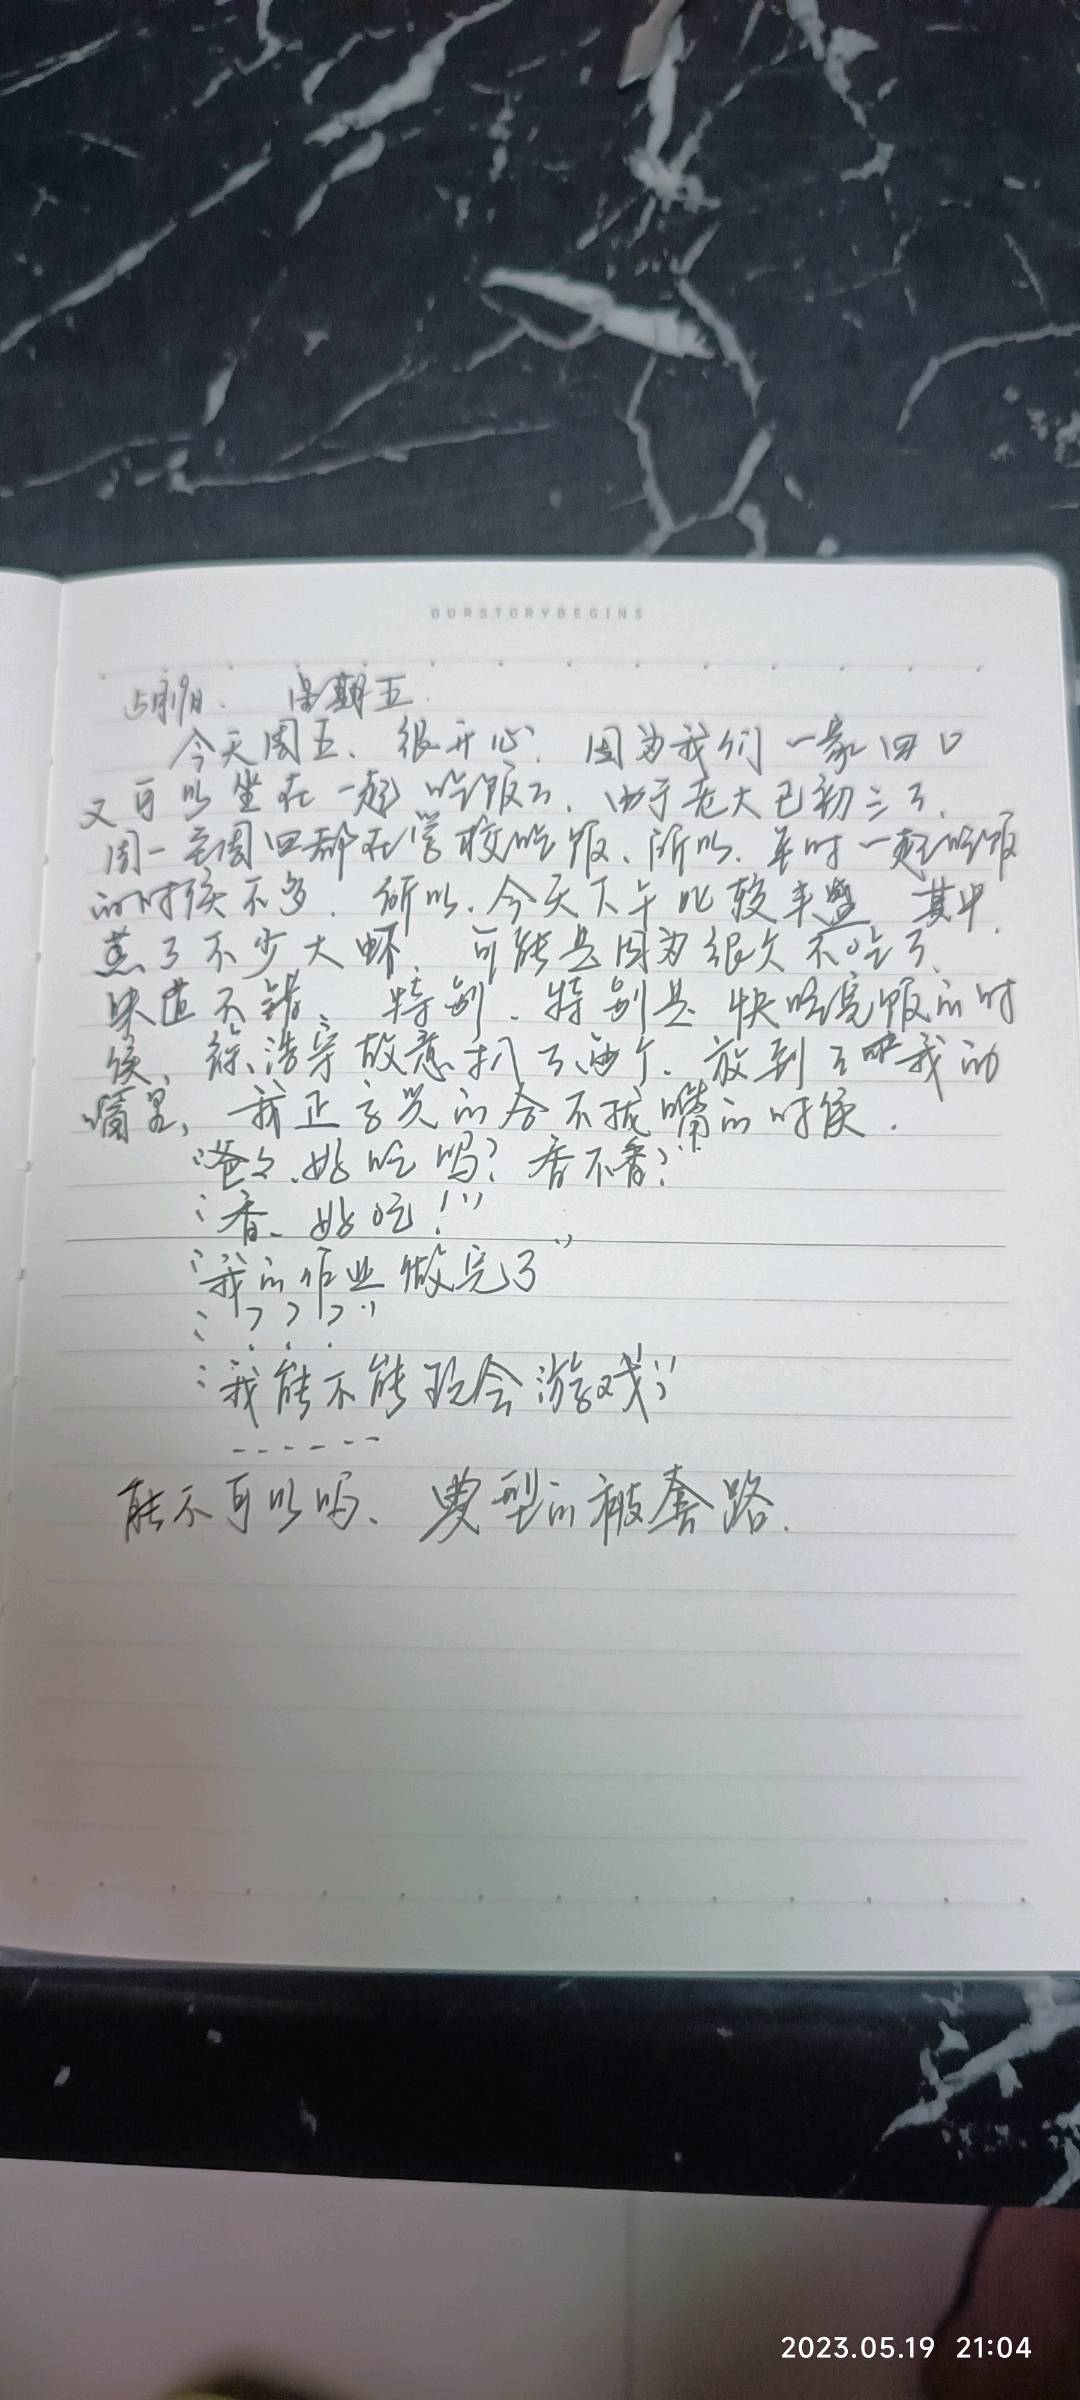 OURSTORYBEGINS
5月19日. 星期五.
今天周五、很开心. 因为我们一家四口
又可以坐在一起吃饭了. 由于老大已初三了.
周一至周四都在学校吃饭、所以. 平时一起吃饭
的时候不多. 所以. 今天下午比较丰盛 其中.
蒸了不少大虾. 可能是因为很久不吃了、
味道不错、特别. 特别是快吃完饭的时
候、徐浩宇故意扒了两个. 放到了我的
嘴里, 我正高兴的合不拢嘴的时候.
“爸爸.好吃吗? 香不香?”
“香、好吃!”
“我的作业做完了”
“???”
“我能不能玩会游戏”
------
能不可以吗、典型的被套路.
2023.05.19 21:04